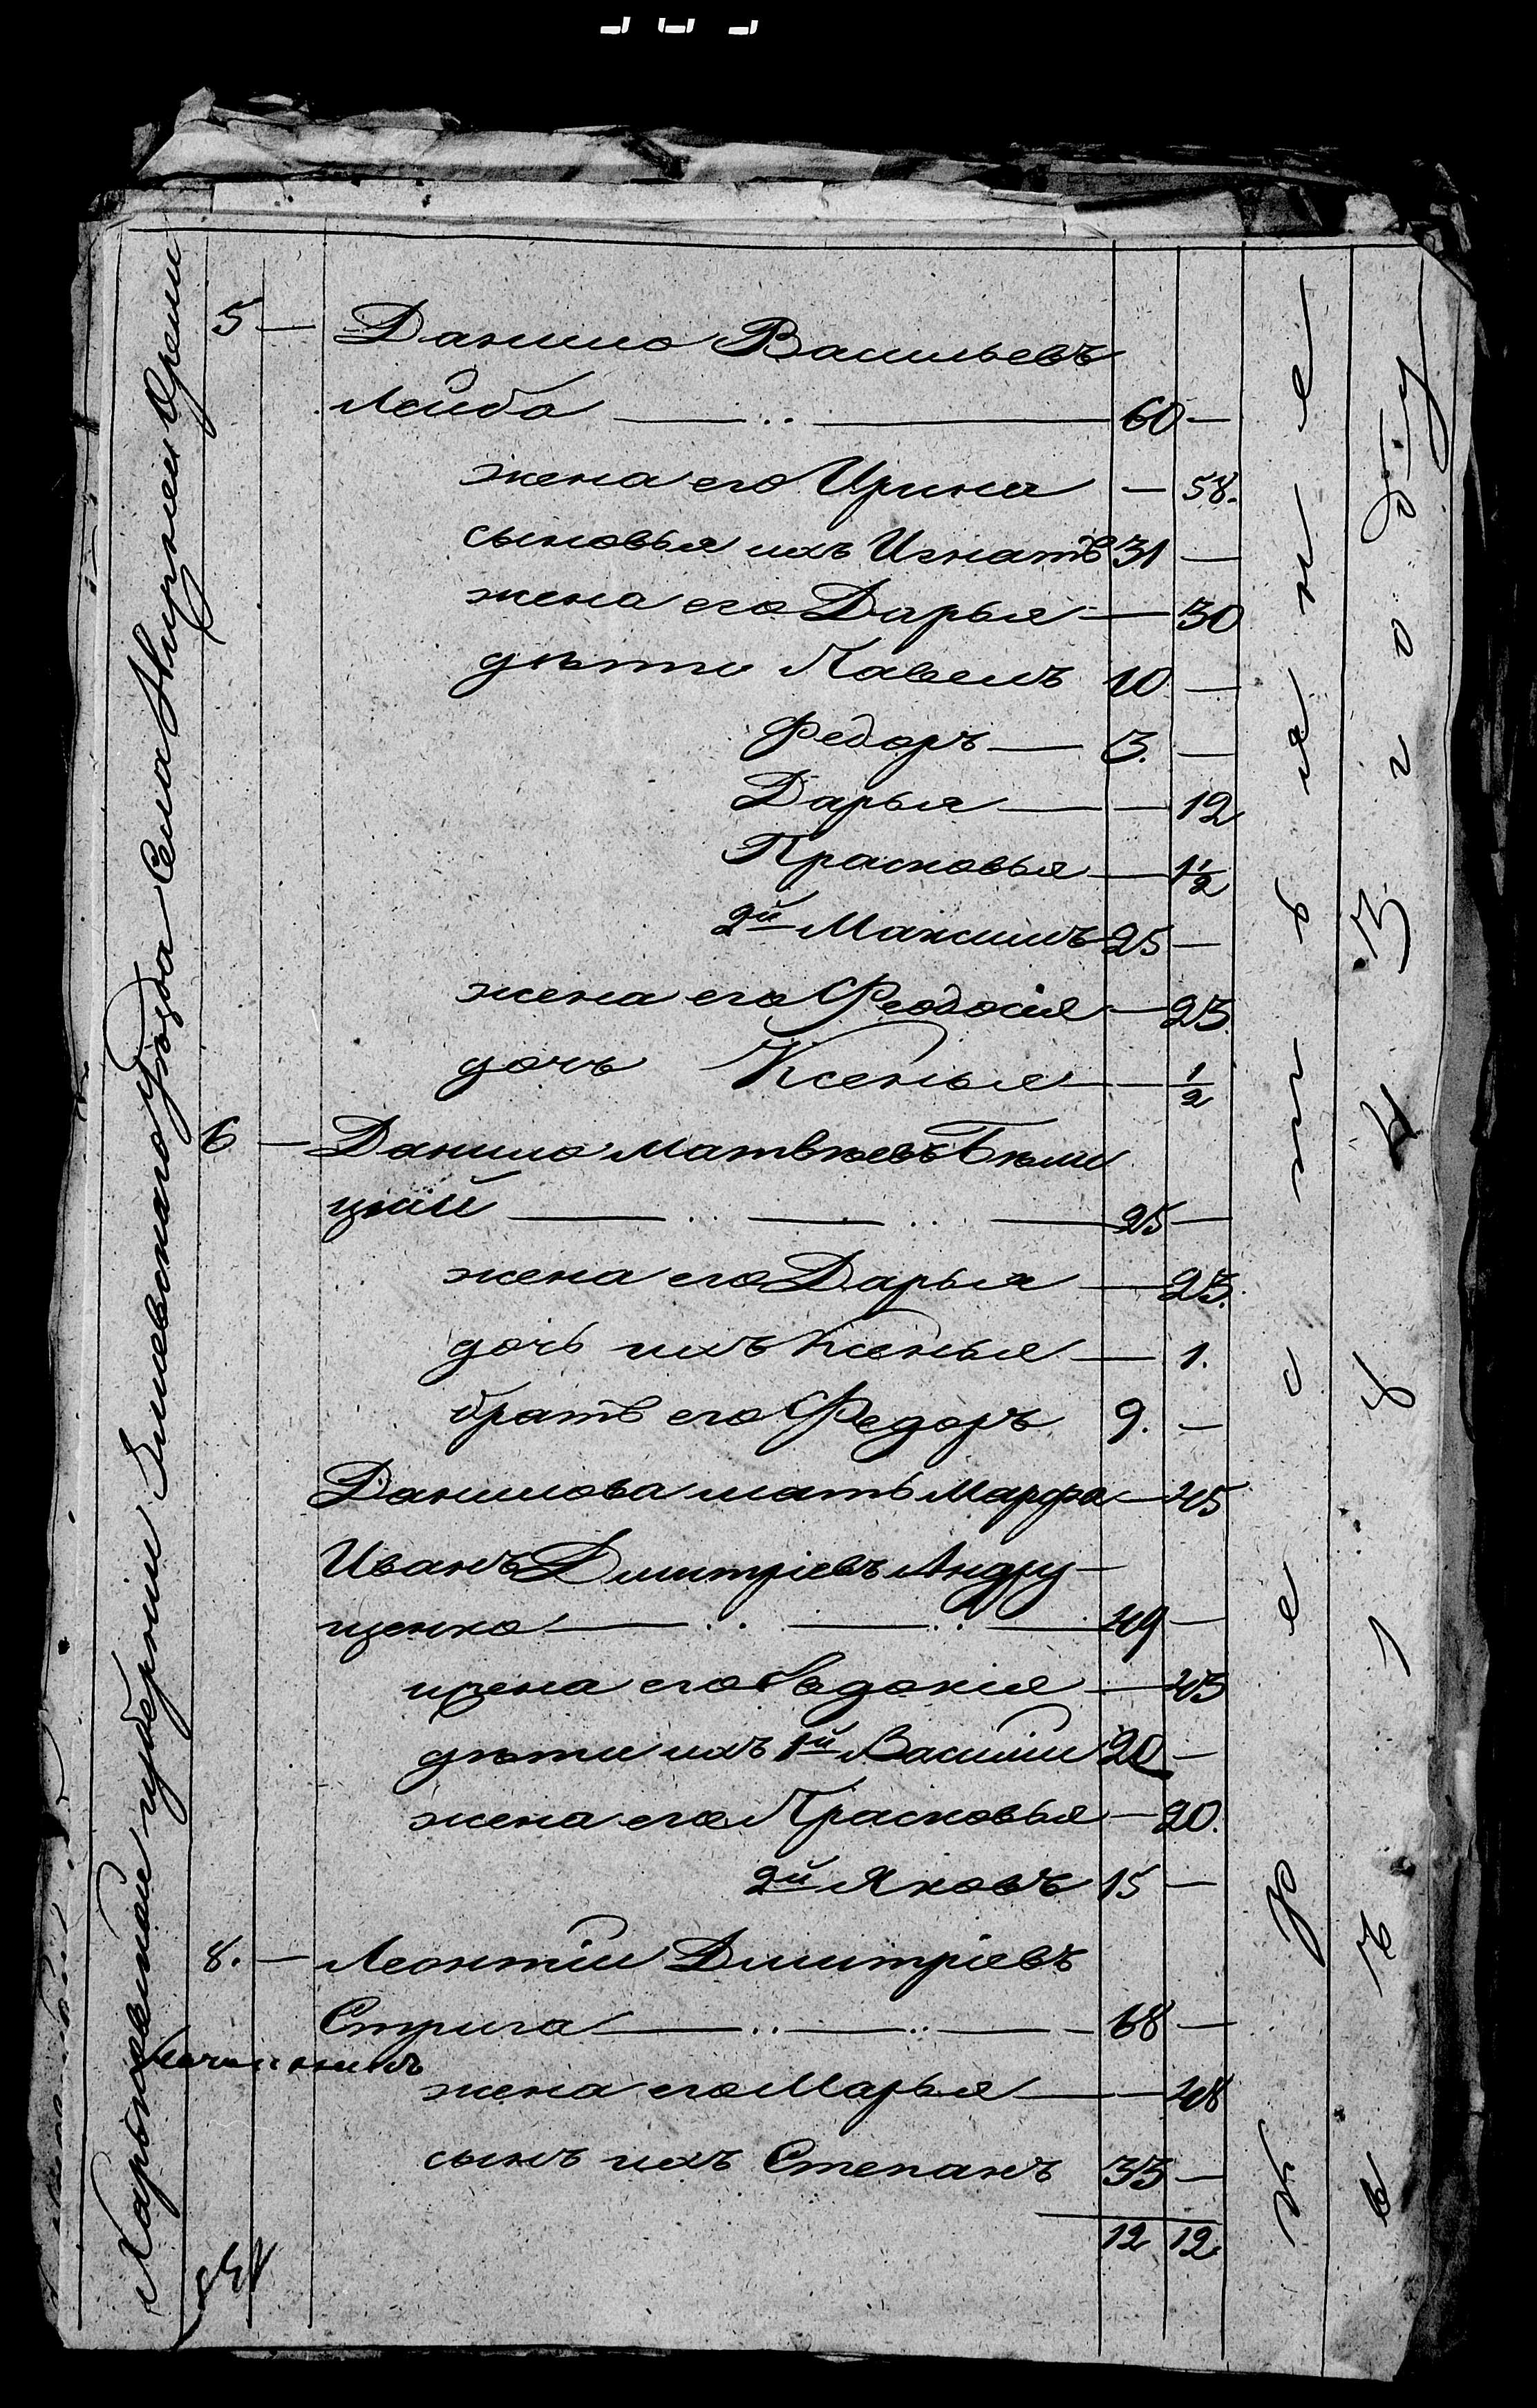 Харьковской губернии Змиевскаго Уѣзда Села Нижней Орели
5 — Данило Васильевъ
Лайба — 60 —
жена его Ирина — 58.
сыновья ихъ Игнатъ 31 —
жена его Дарья — 30
дѣти Павелъ 10 —
Федоръ — 3. —
Дарья — — 12
Прасковья — 1½
2й Максимъ 25 —
жена его Феодосія — 23
дочь Ксенья — — ½
6 — Данило Матвѣевъ Бѣли
цкій — 25 —
жена его Дарья — 23.
дочь ихъ Ксенья — 1.
братъ его Федоръ 9. —
Данилова мать Марфа — 45
Иванъ Дмитріевъ Андру-
щенко — 49 —
жена его Евдокія — 45
дѣти ихъ 1й Василій 20 —
жена его Прасковья — 20.
2й Яковъ 15 —
8. — Леонтій Дмитріевъ
Стрига — 68 —
жена его Марья — — 48
сынъ ихъ Степанъ 33 —
12 12.
Крестьяне
въ 1843 году